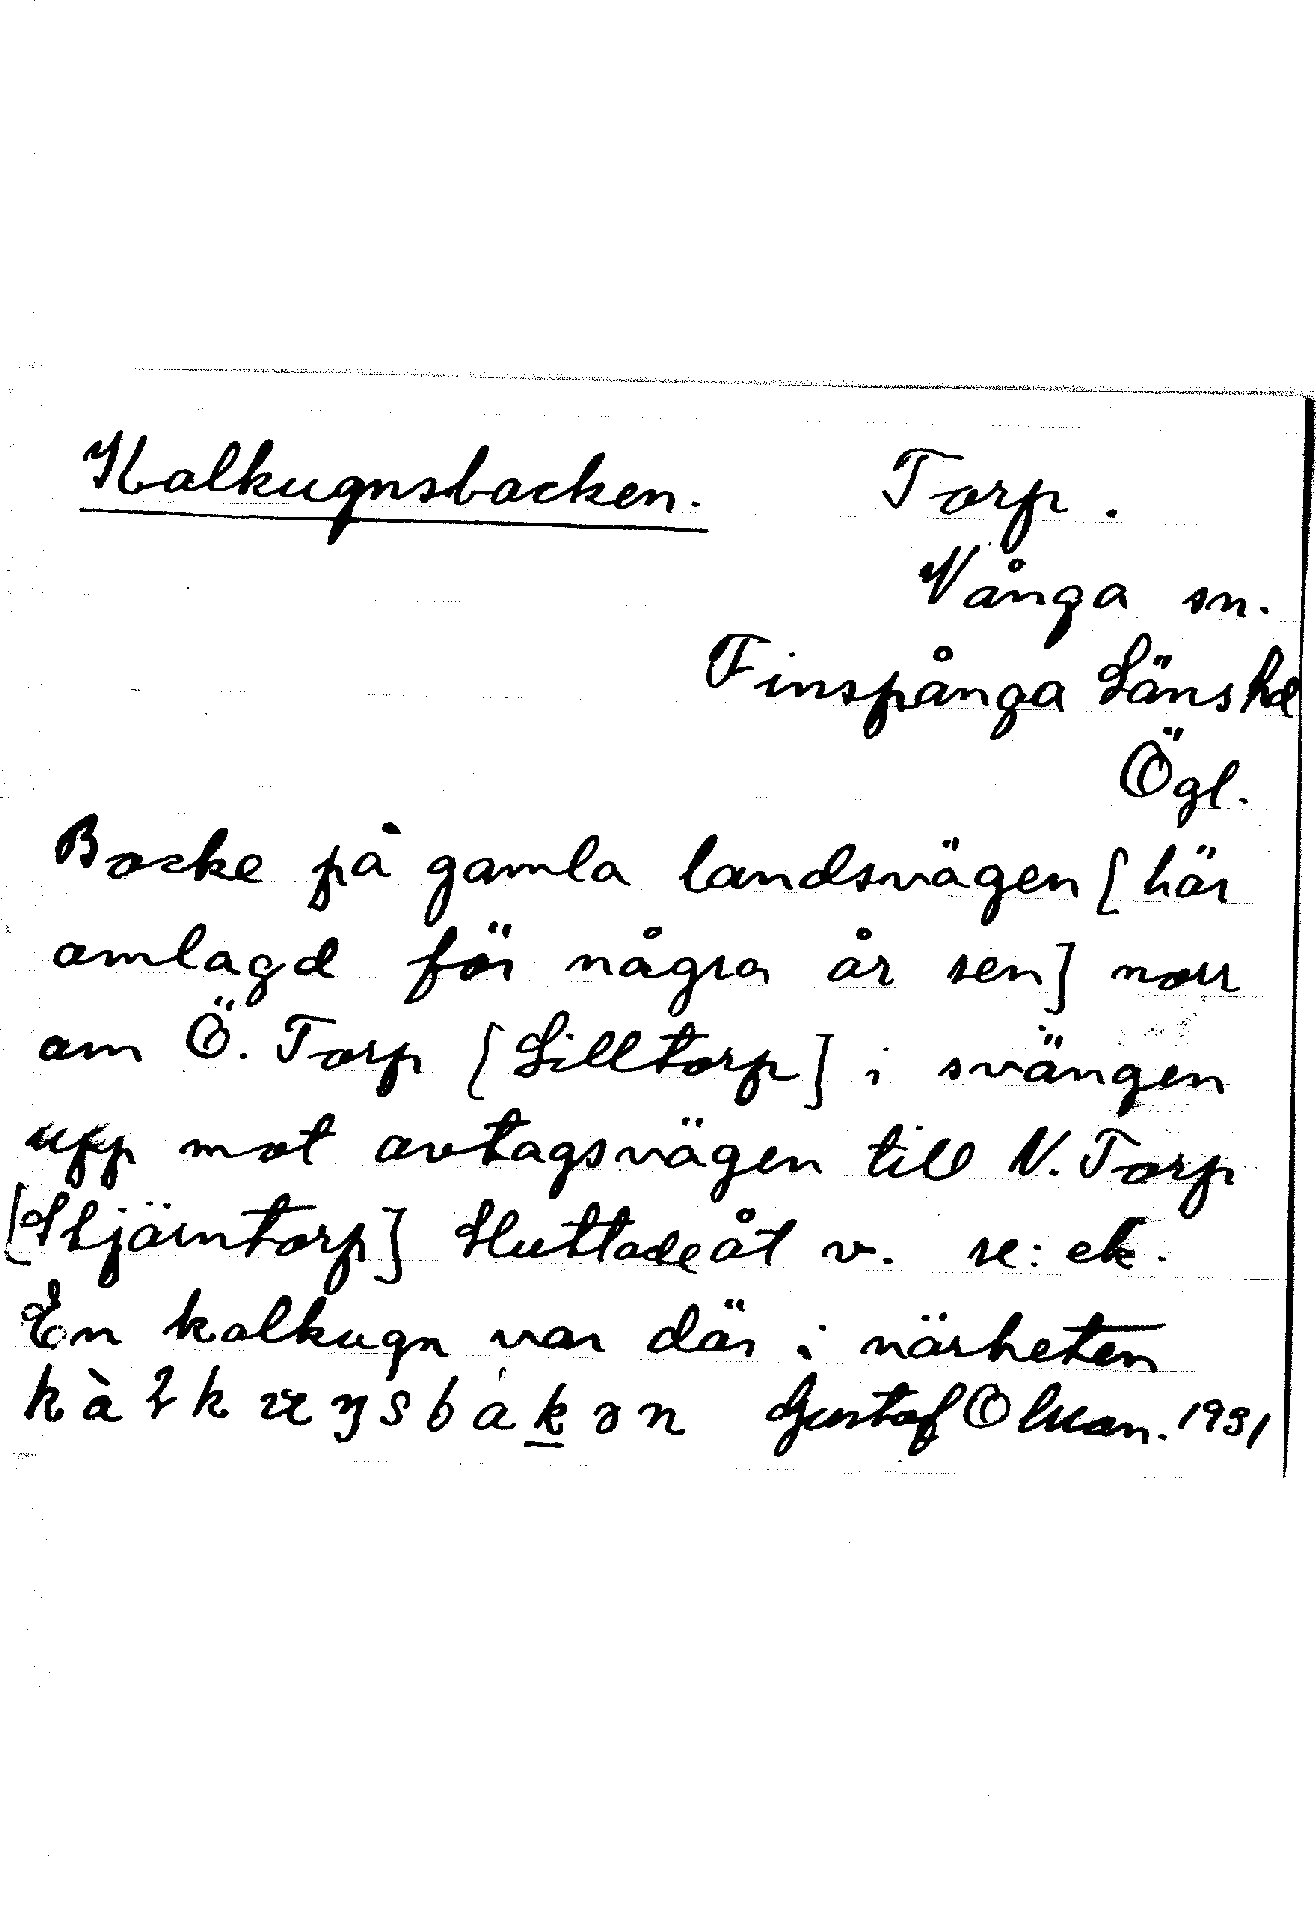 Kalkugnsbacken. Torp.
Vånga sn.
Finspånga Länshd
Ögl.
Backe på gamla landsvägen [här
omlagd för några år sen] norr
om Ö. Torp [Lilltorp] i svängen
upp mot avtagsvägen till N. Torp
[Skjärntorp] Sluttade åt v. se: ek.
En kalkugn var där i närheten
Gustaf Olsson. 1931